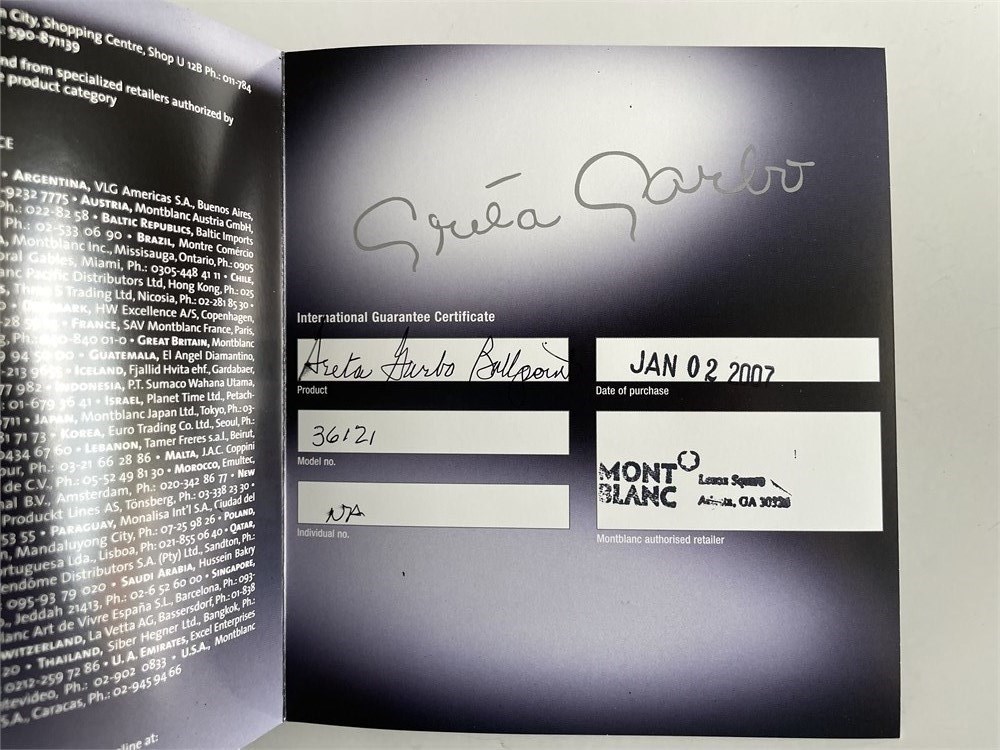 City, Shopping Centre, Shop U 12B Ph.: 011-784
590-871139
nd from specialized retailers authorized by
product category
CE
• ARGENTINA, VLG Americas S.A., Buenos Aires,
-9232 7775 • AUSTRIA, Montblanc Austria GmbH,
Ph.: 022-82 58 • BALTIC REPUBLICS, Baltic Imports
Ph.: 02-533 06 90 • BRAZIL, Montre Comércio
A, Montblanc Inc., Mississauga, Ontario, Ph.: 0905
oral Gables, Miami, Ph.: 0305-448 41 11 • CHILE,
anc Pacific Distributors Ltd, Hong Kong, Ph.: 025
s, Three S Trading Ltd, Nicosia, Ph.: 02-281 85 30 •
DENMARK, HW Excellence A/S, Copenhagen,
• FRANCE, SAV Montblanc France, Paris,
-840 01-0 • GREAT BRITAIN, Montblanc
• GUATEMALA, El Angel Diamantino,
• ICELAND, Fjallid Hvita ehf., Gardabaer,
77 982 • INDONESIA, P.T. Sumaco Wahana Utama,
: 01-679 36 41 • ISRAEL, Planet Time Ltd., Petach-
711 • JAPAN, Montblanc Japan Ltd., Tokyo, Ph.: 03-
81 71 73 • KOREA, Euro Trading Co. Ltd., Seoul, Ph.:
9434 67 60 • LEBANON, Tamer Freres s.a.l., Beirut,
our, Ph.: 03-21 66 28 86 • MALTA, J.A.C. Coppini
de C.V., Ph.: 05-52 49 81 30 • MOROCCO, Emultec,
nal B.V., Amsterdam, Ph.: 020-342 86 77 • NEW
Produckt Lines AS, Tönsberg, Ph.: 03-338 23 30 •
53 55 • PARAGUAY, Monalisa Int'l S.A., Ciudad del
n, Mandaluyong City, Ph.: 07-25 98 26 • POLAND,
ortuguesa Lda., Lisboa, Ph.: 021-855 06 40 • QATAR,
endôme Distributors S.A. (Pty) Ltd., Sandton, Ph.:
095-93 79 020 • SAUDI ARABIA, Hussein Bakry
, Jeddah 21413, Ph.: 02-6 52 60 00 • SINGAPORE,
lanc Art de Vivre España S.L., Barcelona, Ph.: 093-
WITZERLAND, La Vetta AG, Bassersdorf, Ph.: 01-838
20 • THAILAND, Siber Hegner Ltd., Bangkok, Ph.:
0212-259 72 86 • U. A. EMIRATES, Excel Enterprises
tevideo, Ph.: 02-902 0833 • U.S.A., Montblanc
S.A., Caracas, Ph.: 02-945 94 66
line at:
Greta Garbo
International Guarantee Certificate
Greta Garbo Ballpoin
Product
36121
Model no.
NA
Individual no.
JAN 02 2007
Date of purchase
MONT
BLANC
Lenox Square
GA 30326
Montblanc authorised retailer